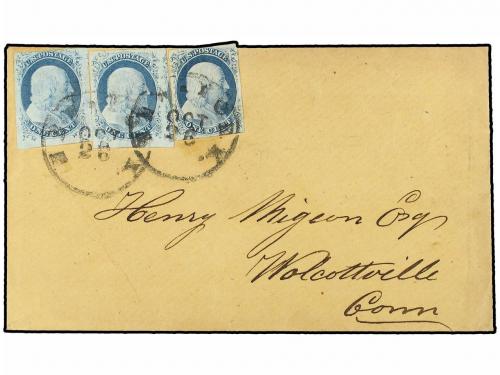 U.S. POSTAGE U.S. POSTAGE U.S. POSTAGE
ONE CENT ONE CENT ONE CENT
OCT OCT
26 26
Henry Migeon Esq
Wolcottville
Conn